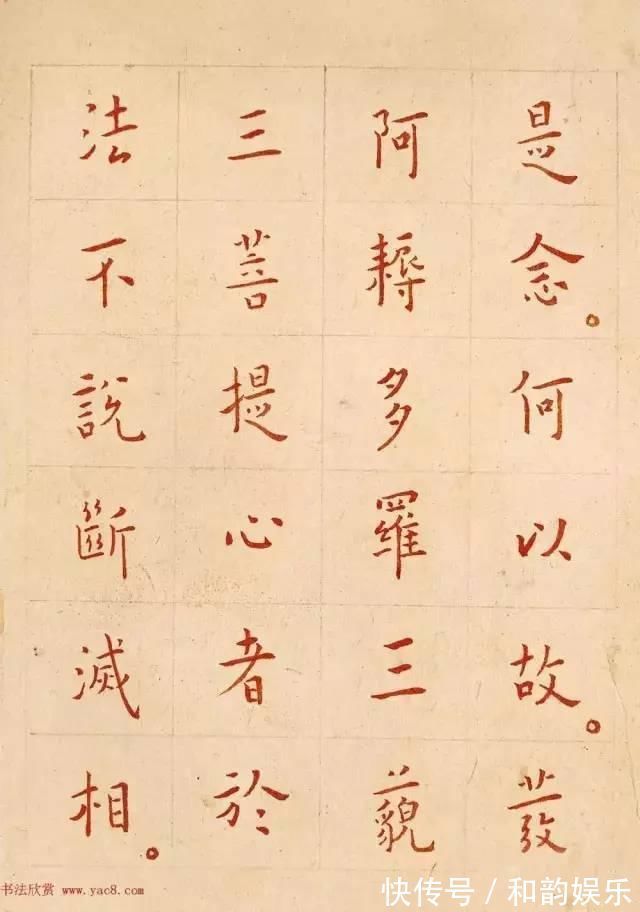 是念。何以故。發
阿耨多羅三藐
三菩提心者於
法不說斷滅相。
书法欣赏 www.yac8.com
快传号/和韵娱乐